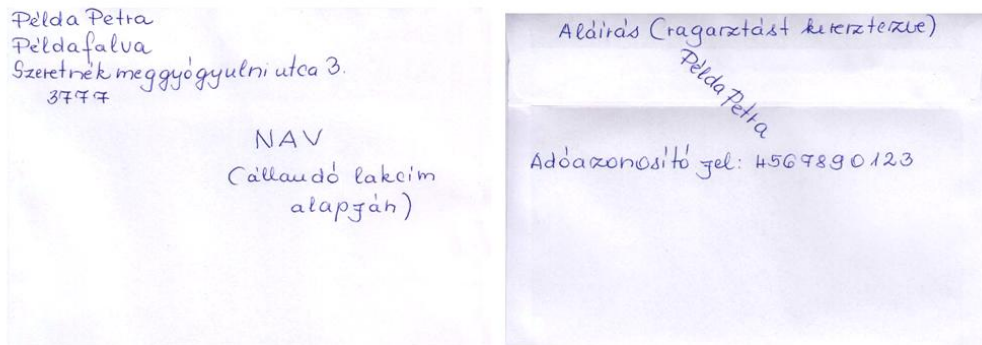 Példa Petra
Példafalva
Szeretnék meggyógyulni utca 3.
3777
NAV
(állaudó lakcím
alapján)
Aláírás (ragarztást kererztezve)
Példa Petra
Adóazonosító jel: 4567890123